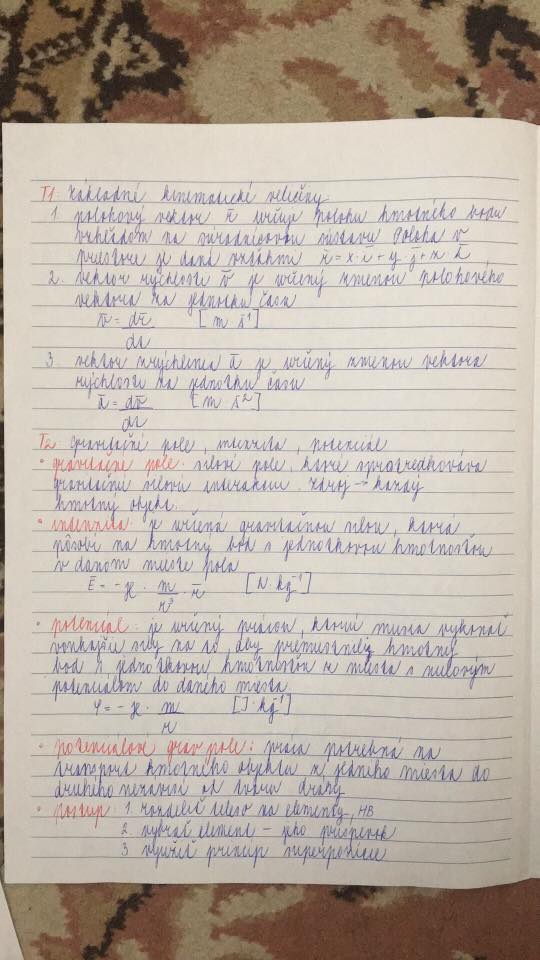 T1: Základné kinematické veličiny:
1. polohový vektor r̄ určuje polohu hmotného bodu
vzhľadom na súradnicovú sústavu Poloha v
priestore je daná vzťahom r̄ = x·ī + y·j̄ + z k̄
2. vektor rýchlosti v̄ je určený zmenou polohového
vektora za jednotku času
v̄ = dr̄/dt [m·s⁻¹]
3. vektor zrýchlenia ā je určený zmenou vektora
rýchlosti za jednotku času
ā = dv̄/dt [m·s⁻²]
T2: Gravitačné pole, intenzita, potenciál
• gravitačné pole: silové pole, ktoré sprostredkováva
gravitačnú silovú interakciu. zdroj → každý
hmotný objekt.
• intenzita: je určená gravitačnou silou, ktorá
pôsobí na hmotný bod s jednotkovou hmotnosťou
v danom mieste poľa
Ē = -ϰ · m/r³ · r̄ [N·kg⁻¹]
• potenciál: je určený prácou, ktorú musia vykonať
vonkajšie sily na to, aby premiestnili hmotný
bod s jednotkovou hmotnosťou z miesta s nulovým
potenciálom do daného miesta.
φ = -ϰ · m/r [J·kg⁻¹]
• potenciálové grav pole: práca potrebná na
transport hmotného objektu z jedného miesta do
druhého nezávisí od tvaru dráhy
• postup: 1. rozdeliť teleso na elementy, HB
2. vybrať element – jeho príspevok
3. využiť princíp superpozície